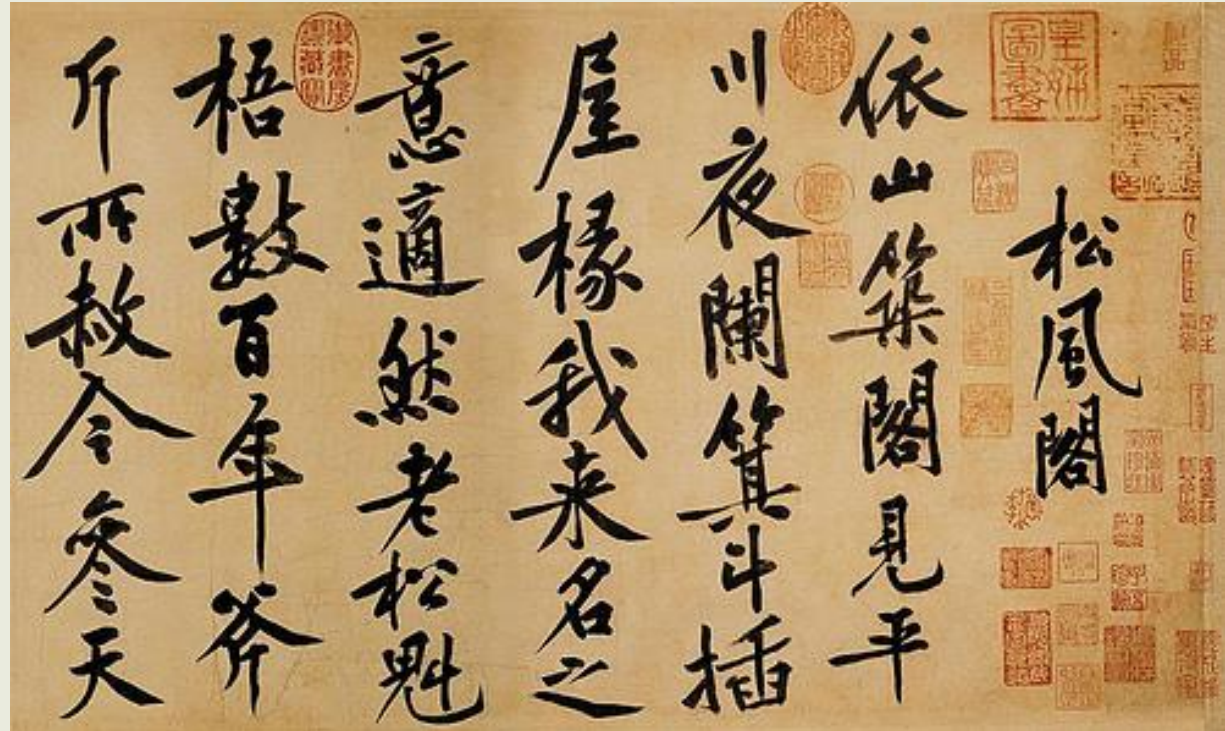 松風閣
依山築閣見平
川夜闌箕斗插
屋椽我来名之
意適然老松魁
梧數百年斧
斤所赦今參天
皇姊圖書